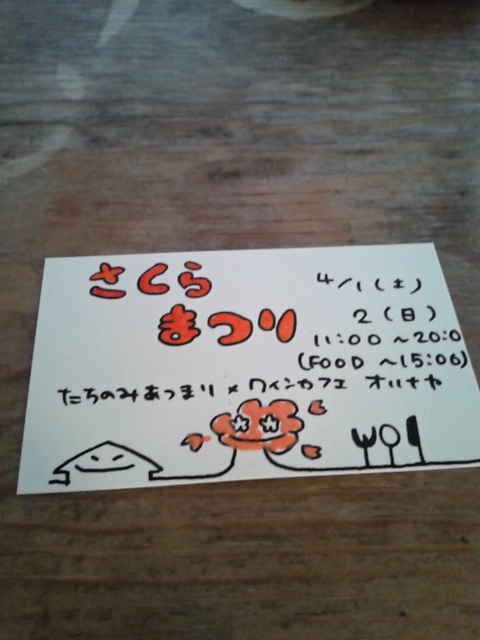 さくら
まつり
4/1(土)
2(日)
11:00～20:0
(FOOD ～15:06)
たちのみあつまり×ワインカフェ オルナヤ